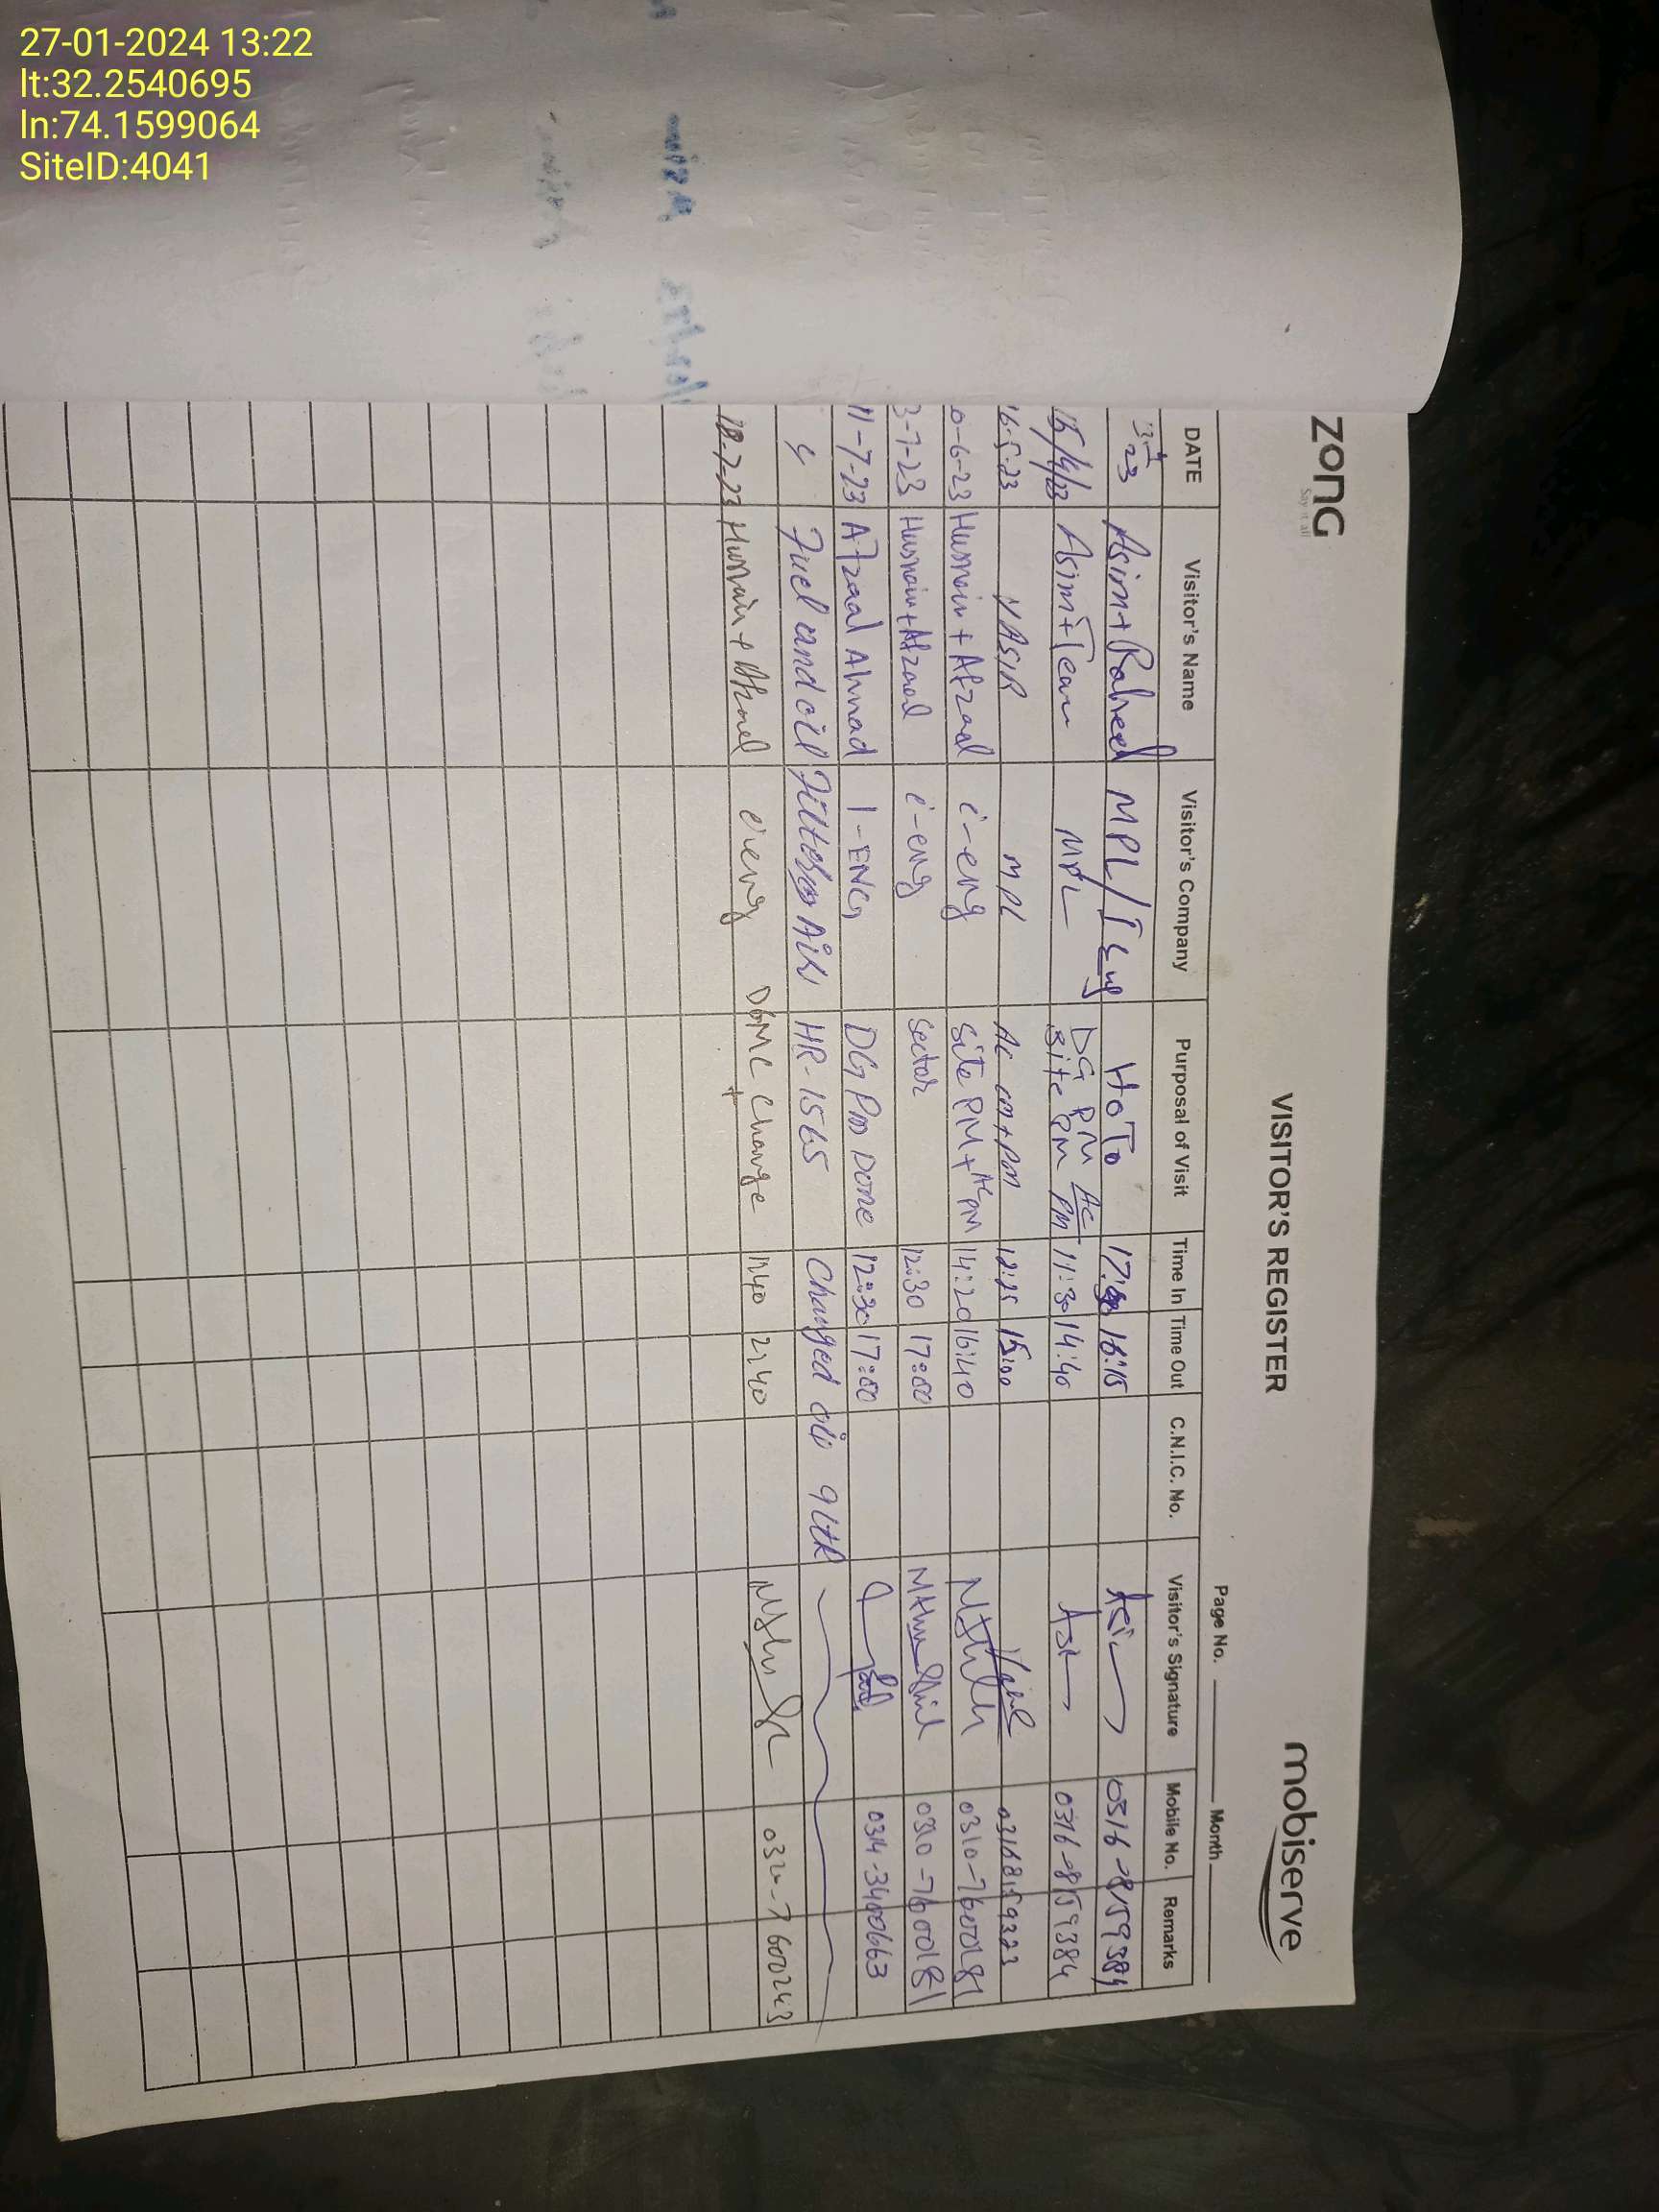 27-01-2024 13:22
lt:32.2540695
ln:74.1599064
SiteID:4041
zong
Say it all
VISITOR'S REGISTER
mobiserve
Page No. Month
DATE Visitor's Name Visitor's Company Purposal of Visit Time In Time Out C.N.I.C. No. Visitor's Signature Mobile No. Remarks
23 Asim+Raheel MPL/ HOTO 16:15 0316-8159384
15/4/23 Asim+Team MPL DG PM AC Site PM PM 11:30 14:40 0316-8159384
16-5-23 YASIR MPL AC cm+PM 15:00
0-6-23 Husnain + Afzaal i-eng Site PM+AC PM 14:20 16:40 0310-7600181
3-7-23 Husnain+Afzaal i-eng Sector 12:30 17:00 0310-7600181
11-7-23 Afzaal Ahmad I-ENG DG Pm Done 12:30 17:00 0314-3400663
Fuel and oil Filters Air HR-1565 Changed oil 9 LtR
18-7-23 Husnain + i-eng DG MC Change + 21:40